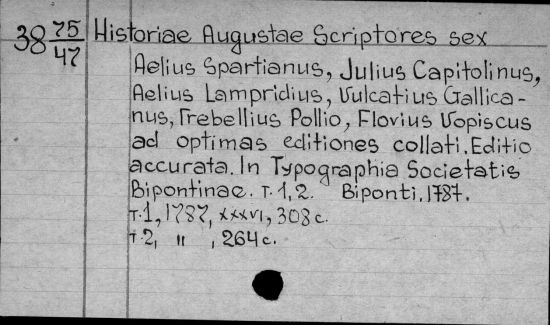 38 75/47 Historiae Augustae Scriptores sex
Aelius Spartianus, Julius Capitolinus,
Aelius Lampridius, Vulcatius Gallica-
nus, Trebellius Pollio, Flovius Vopiscus
ad optimas editiones collati. Editio
accurata. In Typographia Societatis
Bipontinae. T. 1, 2. Biponti, 1787.
т.1, 1787, XXXVI, 308 c.
т.2, " , 264 c.